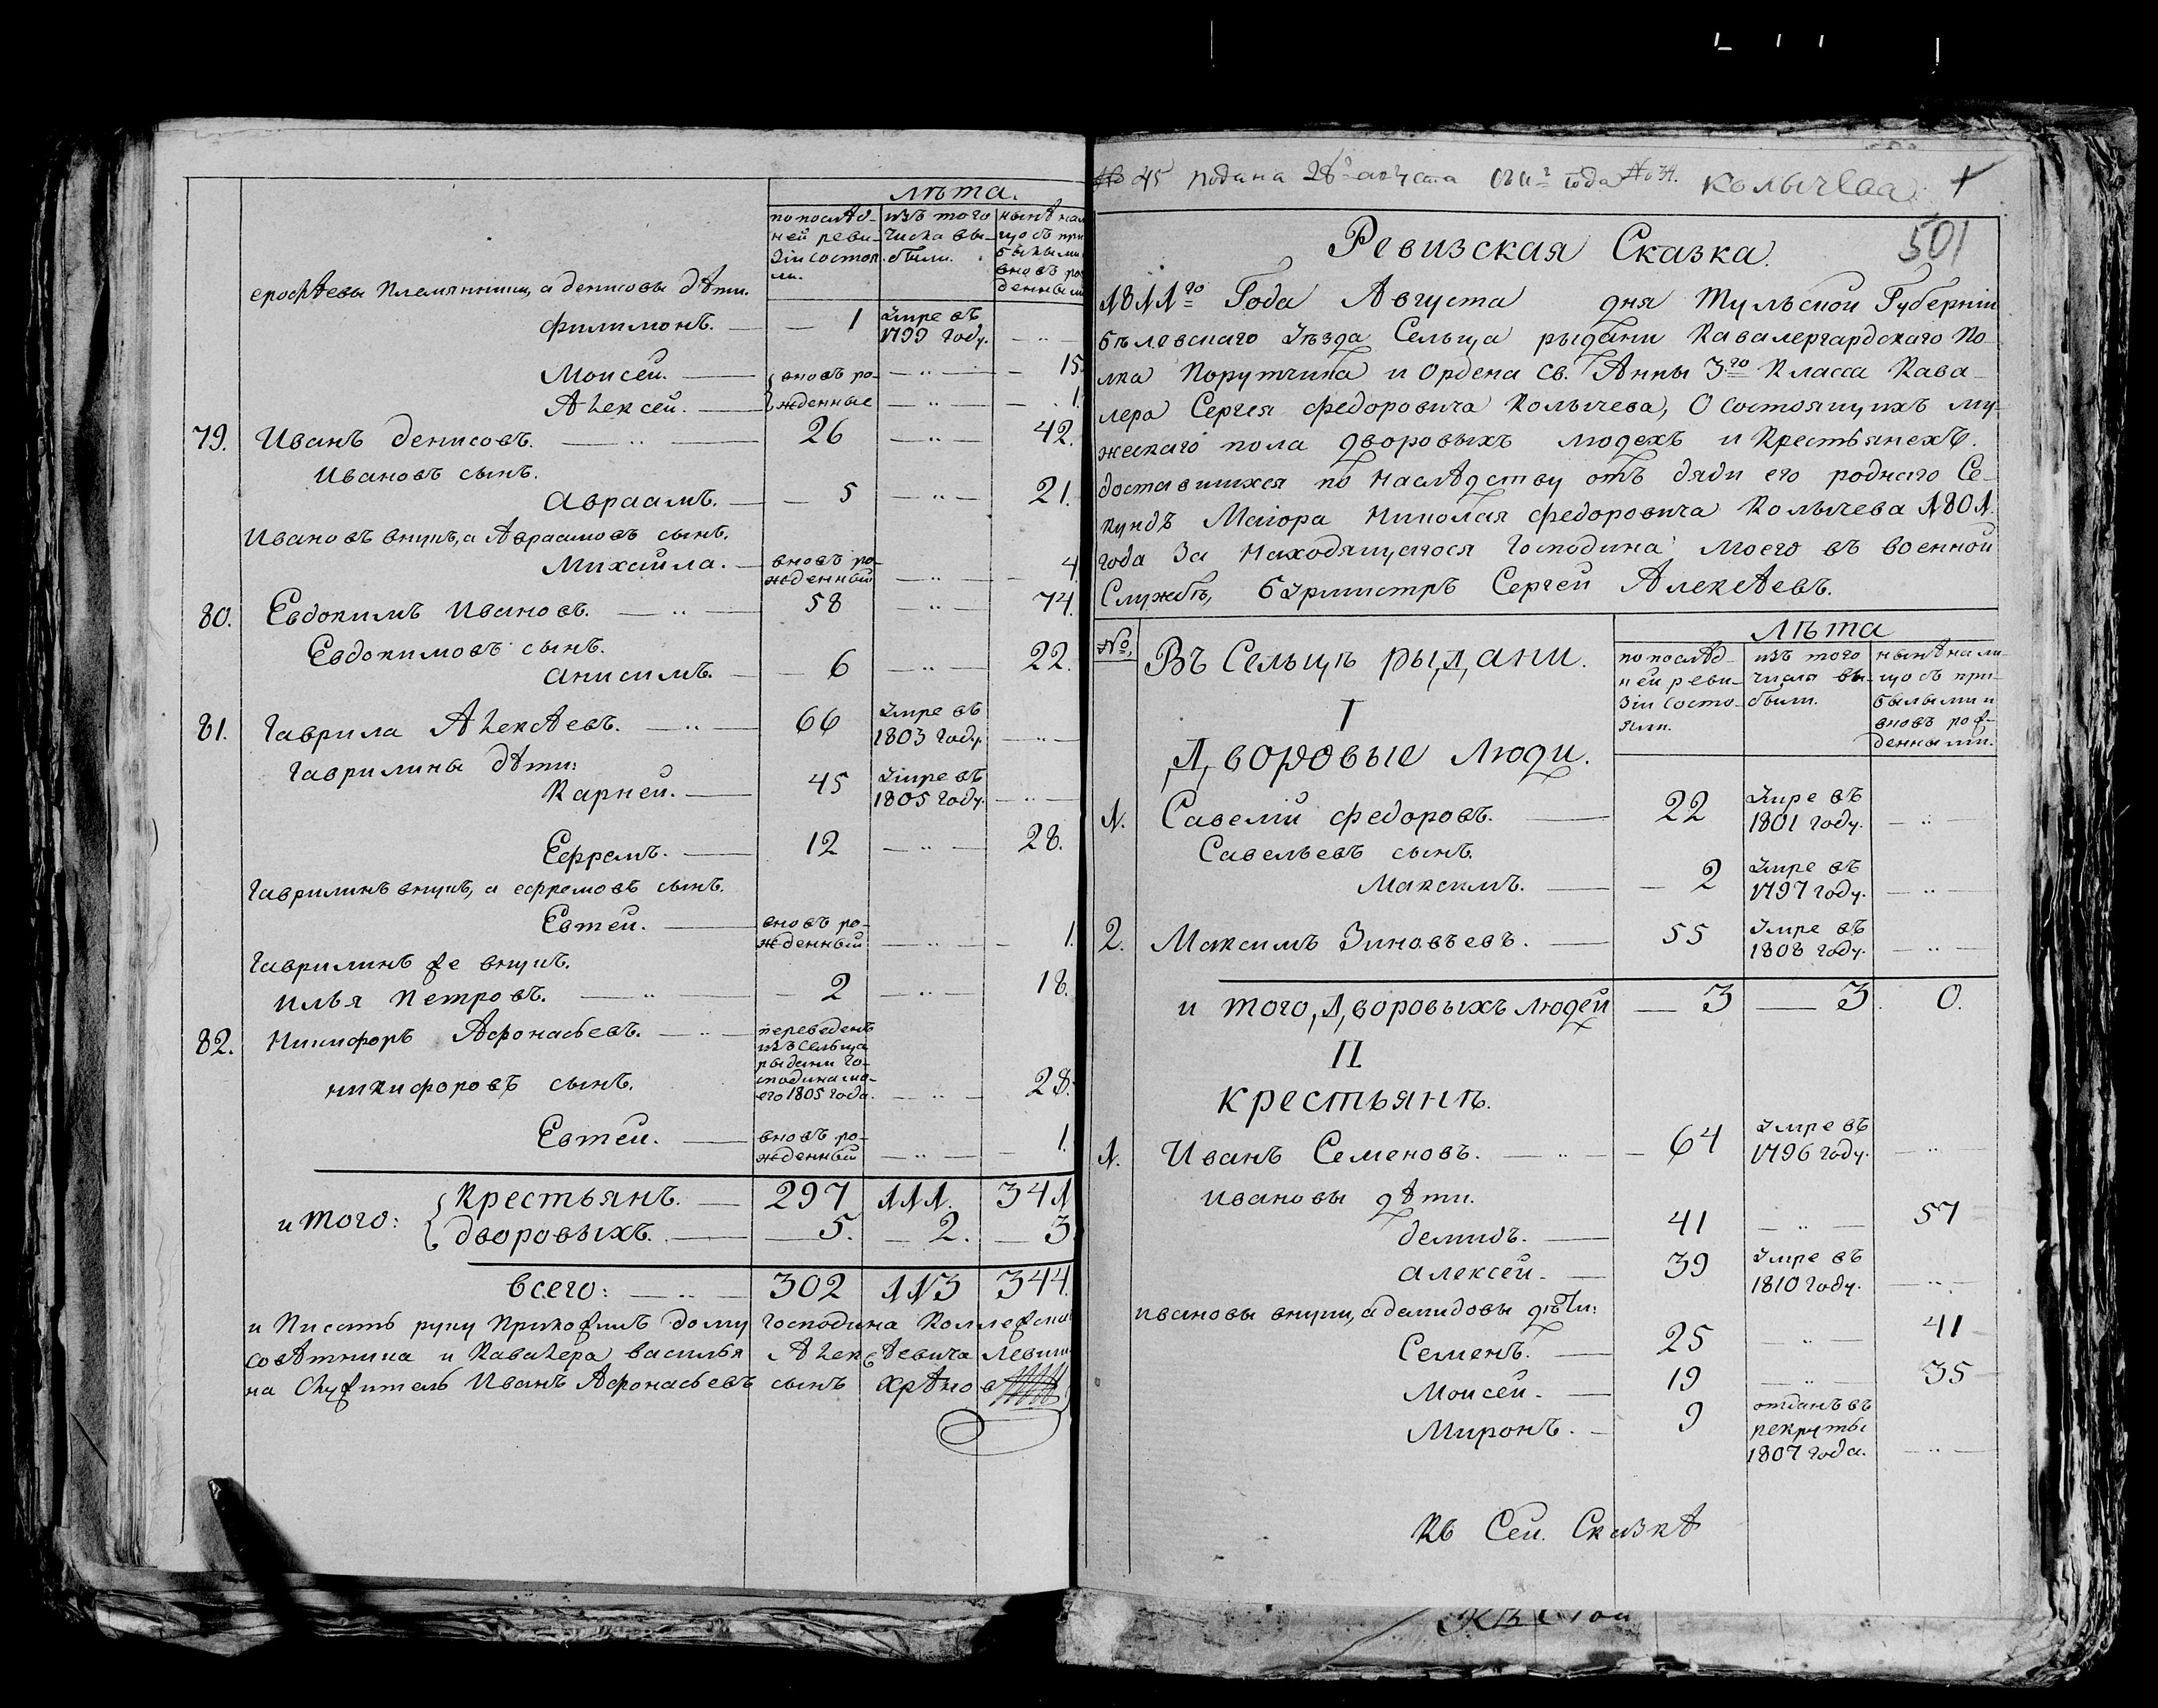 лѣта.
по послѣд- изъ того нынѣ на
ней реви- числа вы- що съ при
зіи состоя были. былыми
ли. вновь ро
денным
ерофѣевы племянники, а денисовы дѣти.
филимонъ. — 1 умре въ 1799 году. — „ —
Моисей. — вновь ро- — „ — 15.
Алексей. — жденные — „ — 1.
79. Иванъ денисовъ. — „ — 26 — „ — 42.
Ивановъ сынъ.
Авраамъ. — 5 — „ — 21.
Ивановъ внукъ, а Авраамовъ сынъ.
Михайла. — вновь рожденный — „ — 4
80. Евдокимъ Ивановъ. — „ — 58 — „ — 74.
Евдокимовъ сынъ.
анисимъ. — 6 — „ — 22.
81. Гаврила Алексѣевъ. — „ — 66 умре въ 1803 году. — „ —
Гаврилины дѣти:
Карней. — 45 умре въ 1805 году. — „ —
Ефремъ. — 12 — „ — 28.
Гаврилинъ внукъ, а ефремовъ сынъ.
Евтей. — вновь рожденный — „ — 1.
Гаврилинъ же внукъ.
илья петровъ. — „ — 2 — „ — 18.
82. Никифоръ Афонасьевъ. — „ — переведенъ
изъ сельца
рыдани го-
сподина мо-
его 1805 года. — „ — 28.
никифоровъ сынъ.
Евтей. — вновь рожденный — „ — 1.
и того: Крестьянъ. — 297 111. 341
дворовыхъ. — 5. — 2. — 3
всего: — „ — 302 113 344.
и Писать руку Приложилъ дому господина Коллежска
совѣтника и Кавалера василья Алексѣевича Левши
на Служитель Иванъ Афонасьевъ сынъ
№ 45 подана 28го августа года № 34. Колычева +
501
Ревизская Сказка.
1811го Года Августа дня Тульской Губерніи
бѣлевскаго уѣзда Сельца рыдани Кавалергардскаго По-
лка Порутчика и Ордена св. Анны 3го Класса Кава-
лера Сергея федоровича Колычева, О состоящихъ му-
жескаго пола дворовыхъ людехъ и Крестьянехъ.
доставшихся по наслѣдству отъ дяди его роднаго Се-
кундъ Маіора Николая федоровича Колычева 1801.
года За находящегося господина моего въ военной
Службѣ, бурмистръ Сергей Алексѣевъ.
№. Въ Сельцѣ рыдани. лѣта
по послѣд- изъ того нынѣ нали-
ней реви- числа вы- що съ при-
зіи состо- были. былыми и
яли. вновь рож-
денными.
I
Дворовые люди.
1. Савелій федоровъ. — 22 умре въ 1801 году. — „ —
Савельевъ сынъ.
Максимъ. — 2 умре въ 1797 году. — „ —
2. Максимъ Зиновьевъ. — 55 умре въ 1808 году. — „ —
и того, дворовыхъ людей — 3 — 3. 0.
II
крестьянѣ.
1. Иванъ Семеновъ. — „ — 64 умре въ 1796 году. — „ —
ивановы дѣти.
демидъ. — 41 — „ — 57
алексей. — 39 умре въ 1810 году. — „ —
ивановы внуки, а демидовы дѣти:
Семенъ. — 25 — „ — 41
Моисей. — 19 — „ — 35
Миронъ. — 9 отданъ въ
рекруты
1807 года. — „ —
Къ Сей. Сказкѣ